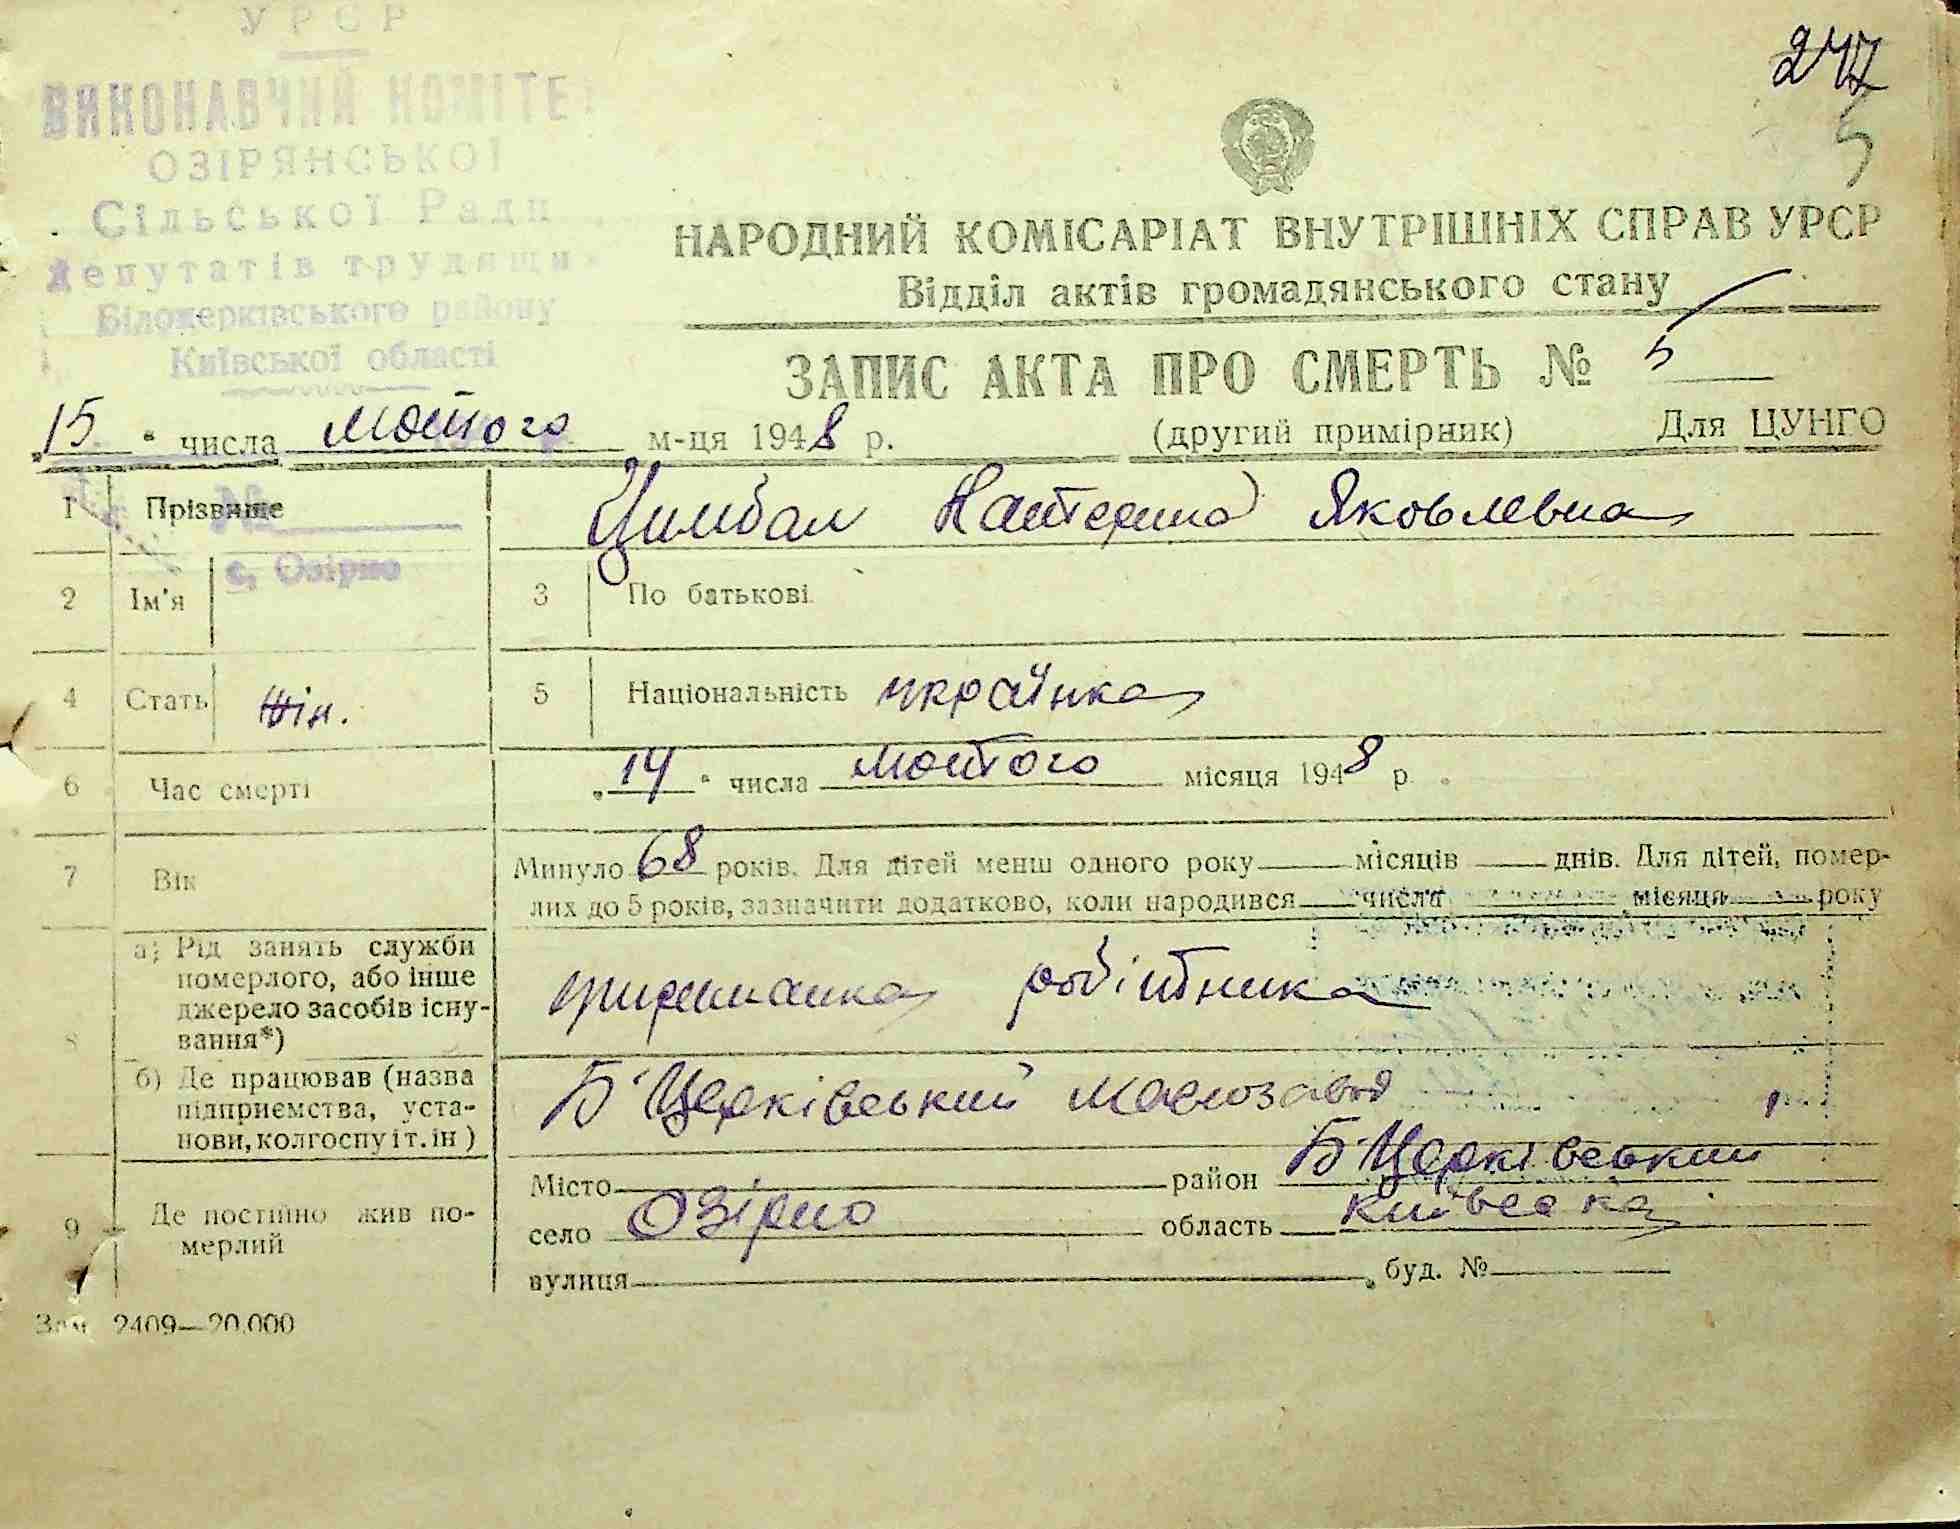 УРСР
ВИКОНАВЧИЙ КОМІТЕ
ОЗІРЯНСЬКОЇ
Сільської Ради
депутатів трудящи
Білоцерківського району
Київської області
№
с. Озірно
247
5
НАРОДНИЙ КОМІСАРІАТ ВНУТРІШНІХ СПРАВ УРСР
Відділ актів громадянського стану
ЗАПИС АКТА ПРО СМЕРТЬ № 5
15 " числа лютого м-ця 1948 р. (другий примірник) Для ЦУНГО
1 Прізвище Цимбал Катерина Яковлевна
2 Ім'я 3 По батькові
4 Стать жін. 5 Національність українка
6 Час смерті „14 " числа лютого місяця 1948 р.
7 Вік Минуло 68 років. Для дітей менш одного року — місяців — днів. Для дітей, помер-
лих до 5 років, зазначити додатково, коли народився — числа місяця року
8 а) Рід занять служби
померлого, або інше
джерело засобів існу-
вання*)
робітника
б) Де працював (назва
підприємства, уста-
нови, колгоспу і т. ін)
Б-Церківський маслозавод
9 Де постійно жив по-
мерлий
Місто район Б-Церківський
село Озірно область Київська
вулиця буд. №
Зам. 2409—20.000